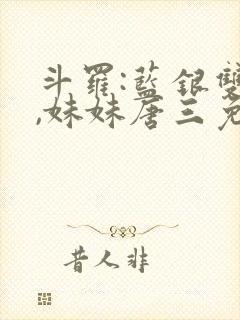 斗羅:藍銀雙
,妹妹唐三免
昔人非